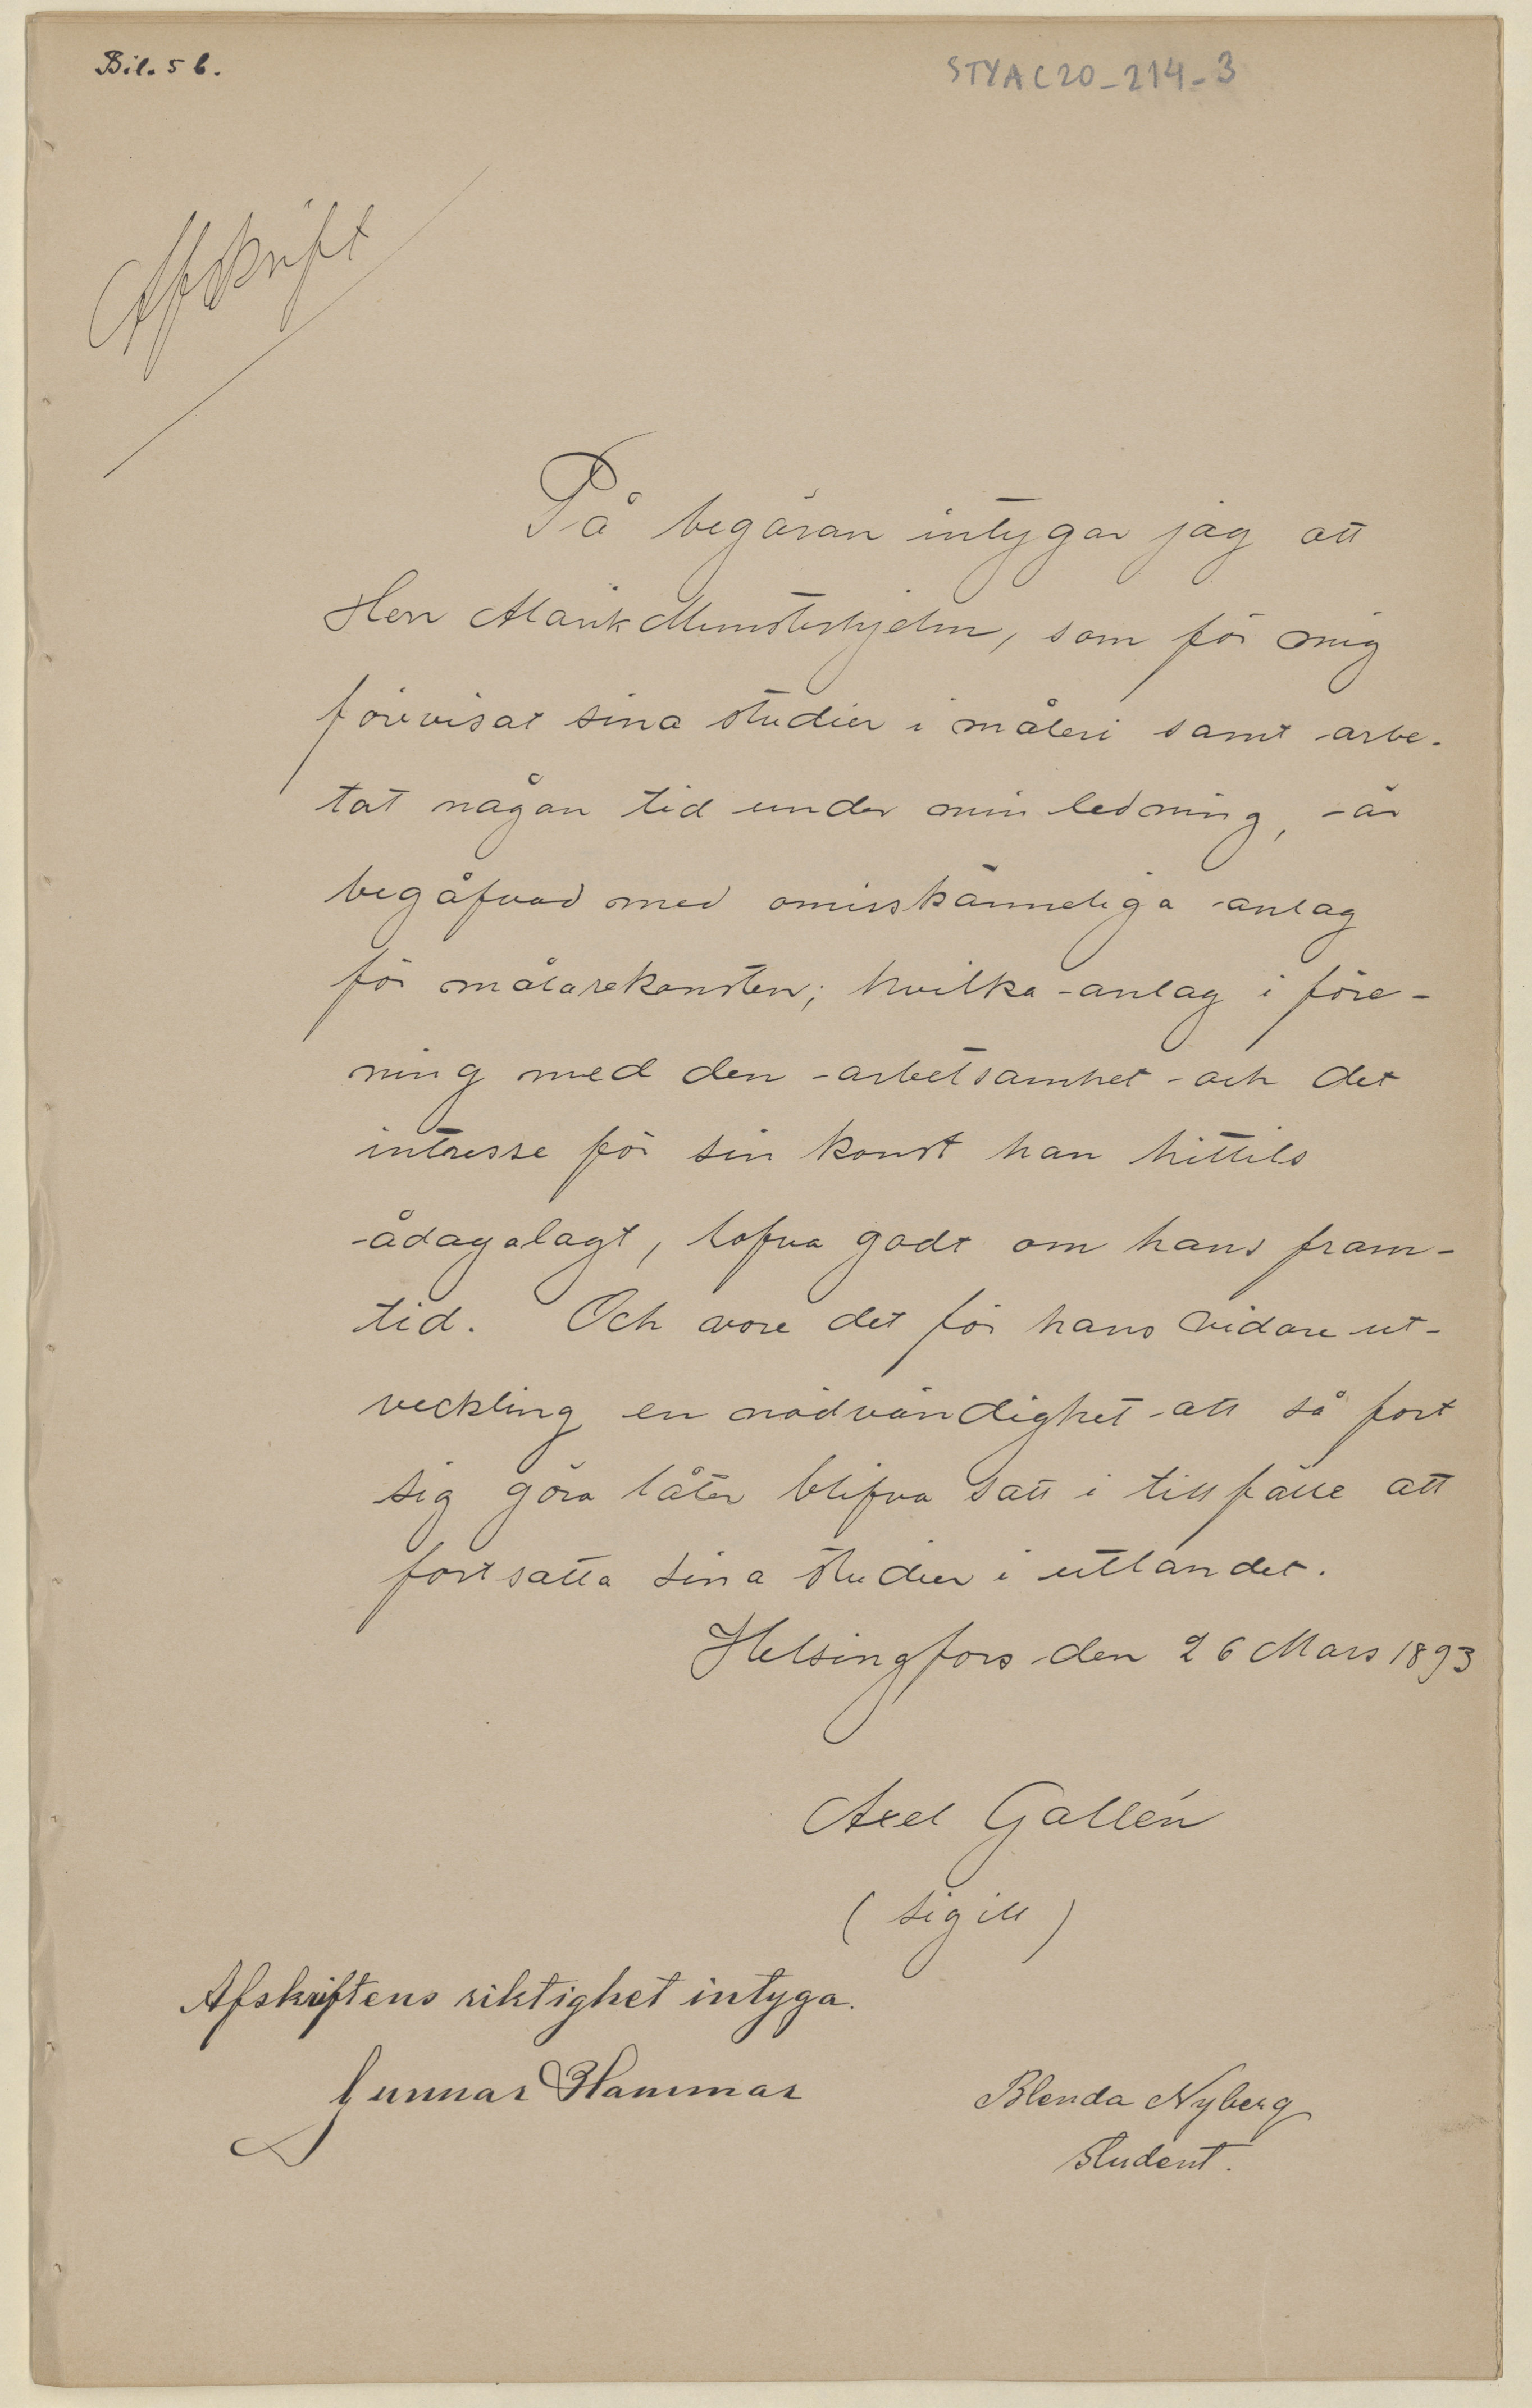 Bil. 5 b.
STYA C20_214_3
Afskrift
På begäran intygar jag att
Herr Alarik Munsterhjelm, som för mig
förevisat sina studier i måleri samt arbe-
tat någon tid under min ledning, är
begåfvad med omisskänneliga anlag
för målarekonsten; hvilka anlag i före-
ning med den arbetsamhet och det
intresse för sin konst han hittils
ådagalagt, lofva godt om hans fram-
tid. Och vore det för hans vidare ut-
veckling en nödvändighet att så fort
sig göra låter blifva satt i tillfälle att
fortsätta sina studier i utlandet.
Helsingfors den 26 Mars 1893
Axel Gallén
(sigill)
Afskriftens riktighet intyga.
Gunnar Hammar
Blenda Nyberg
student.